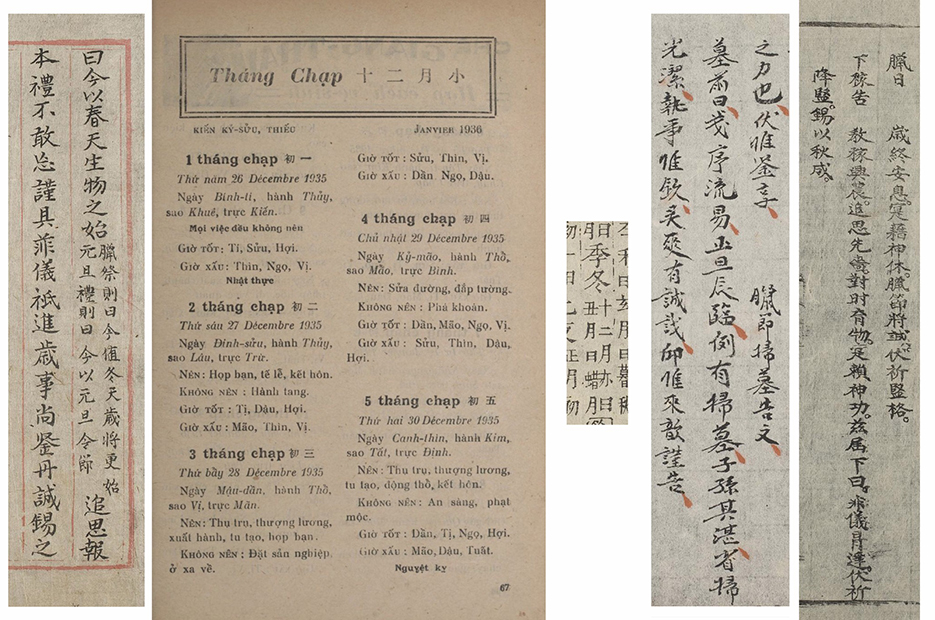 曰今以春天生物之始
臘祭則曰今值冬天歲將更始
元旦禮則曰今以元旦令節
追思報
本禮不敢忘謹具菲儀祗進歲事尚鉴丹誠錫之
Tháng Chạp 十二月小
KIẾN KỶ-SỬU, THIẾU
JANVIER 1936
1 tháng chạp 初一
Thứ năm 26 Décembre 1935
Ngày Bính-tí, hành Thủy,
sao Khuê, trực Kiến.
Mọi việc đều không nên
GIỜ TỐT: Tí, Sửu, Hợi.
GIỜ XẤU: Thìn, Ngọ, Vị.
Nhật thực
2 tháng chạp 初二
Thứ sáu 27 Décembre 1935
Ngày Đinh-sửu, hành Thủy,
sao Lâu, trực Trừ.
NÊN: Họp bạn, tế lễ, kết hôn.
KHÔNG NÊN: Hành tang.
GIỜ TỐT: Tị, Dậu, Hợi.
GIỜ XẤU: Mão, Thìn, Vị.
3 tháng chạp 初三
Thứ bảy 28 Décembre 1935
Ngày Mậu-dần, hành Thổ,
sao Vị, trực Mãn.
NÊN: Thụ trụ, thượng lương,
xuất hành, tu tạo, họp bạn.
KHÔNG NÊN: Đặt sản nghiệp,
ở xa về.
GIỜ TỐT: Sửu, Thìn, Vị.
GIỜ XẤU: Dần, Ngọ, Dậu.
4 tháng chạp 初四
Chủ nhật 29 Décembre 1935
Ngày Kỷ-mão, hành Thổ,
sao Mão, trực Bình.
NÊN: Sửa đường, đắp tường.
KHÔNG NÊN: Phá khoán.
GIỜ TỐT: Dần, Mão, Ngọ, Vị.
GIỜ XẤU: Sửu, Thìn, Dậu,
Hợi.
5 tháng chạp 初五
Thứ hai 30 Décembre 1935
Ngày Canh-thìn, hành Kim,
sao Tất, trực Định.
NÊN: Thụ trụ, thượng lương,
tu tạo, động thổ, kết hôn.
KHÔNG NÊN: An sàng, phạt
mộc.
GIỜ TỐT: Dần, Tị, Ngọ, Hợi.
GIỜ XẤU: Mão, Dậu, Tuất.
Nguyệt kỵ
67
季冬十二月亦曰
丑月曰蜡月
之力也伏惟鉴享 臘節掃墓告文
墓前曰戎序流易正旦辰臨例有掃墓子孫其湛省掃
光潔執事惟欽灵爽有誠哉仰惟來歆謹告
臘日 歲終安息寔藉神休臘節將誠伏祈鑒格
下稼告 教稼興農追思先嗇對时育物寔賴神功茲届下曰非儀伏祈
降鑒錫以秋成